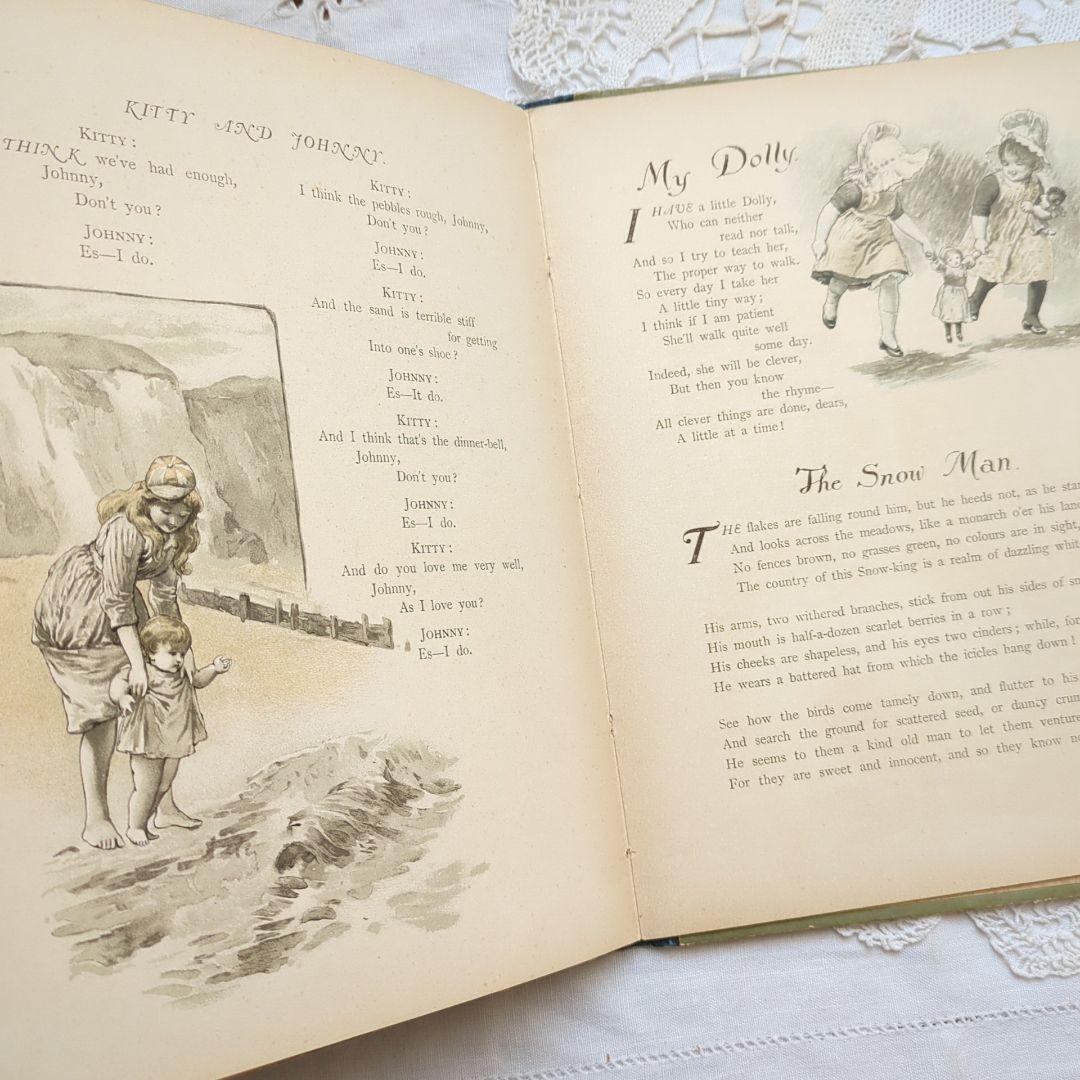 KITTY AND JOHNNY.
KITTY:
THINK we've had enough,
Johnny,
Don't you?
JOHNNY:
Es—I do.
KITTY:
I think the pebbles rough, Johnny,
Don't you?
JOHNNY:
Es—I do.
KITTY:
And the sand is terrible stiff
for getting
Into one's shoe?
JOHNNY:
Es—It do.
KITTY:
And I think that's the dinner-bell,
Johnny,
Don't you?
JOHNNY:
Es—I do.
KITTY:
And do you love me very well,
Johnny,
As I love you?
JOHNNY:
Es—I do.
My Dolly.
I HAVE a little Dolly,
Who can neither
read nor talk,
And so I try to teach her,
The proper way to walk.
So every day I take her
A little tiny way;
I think if I am patient
She'll walk quite well
some day.
Indeed, she will be clever,
But then you know
the rhyme—
All clever things are done, dears,
A little at a time!
The Snow Man.
THE flakes are falling round him, but he heeds not, as he
And looks across the meadows, like a monarch o'er his
No fences brown, no grasses green, no colours are in sight,
The country of this Snow-king is a realm of dazzling
His arms, two withered branches, stick from out his sides of
His mouth is half-a-dozen scarlet berries in a row;
His cheeks are shapeless, and his eyes two cinders; while,
He wears a battered hat from which the icicles hang down!
See how the birds come tamely down, and flutter to his
And search the ground for scattered seed, or dainty
He seems to them a kind old man to let them venture
For they are sweet and innocent, and so they know